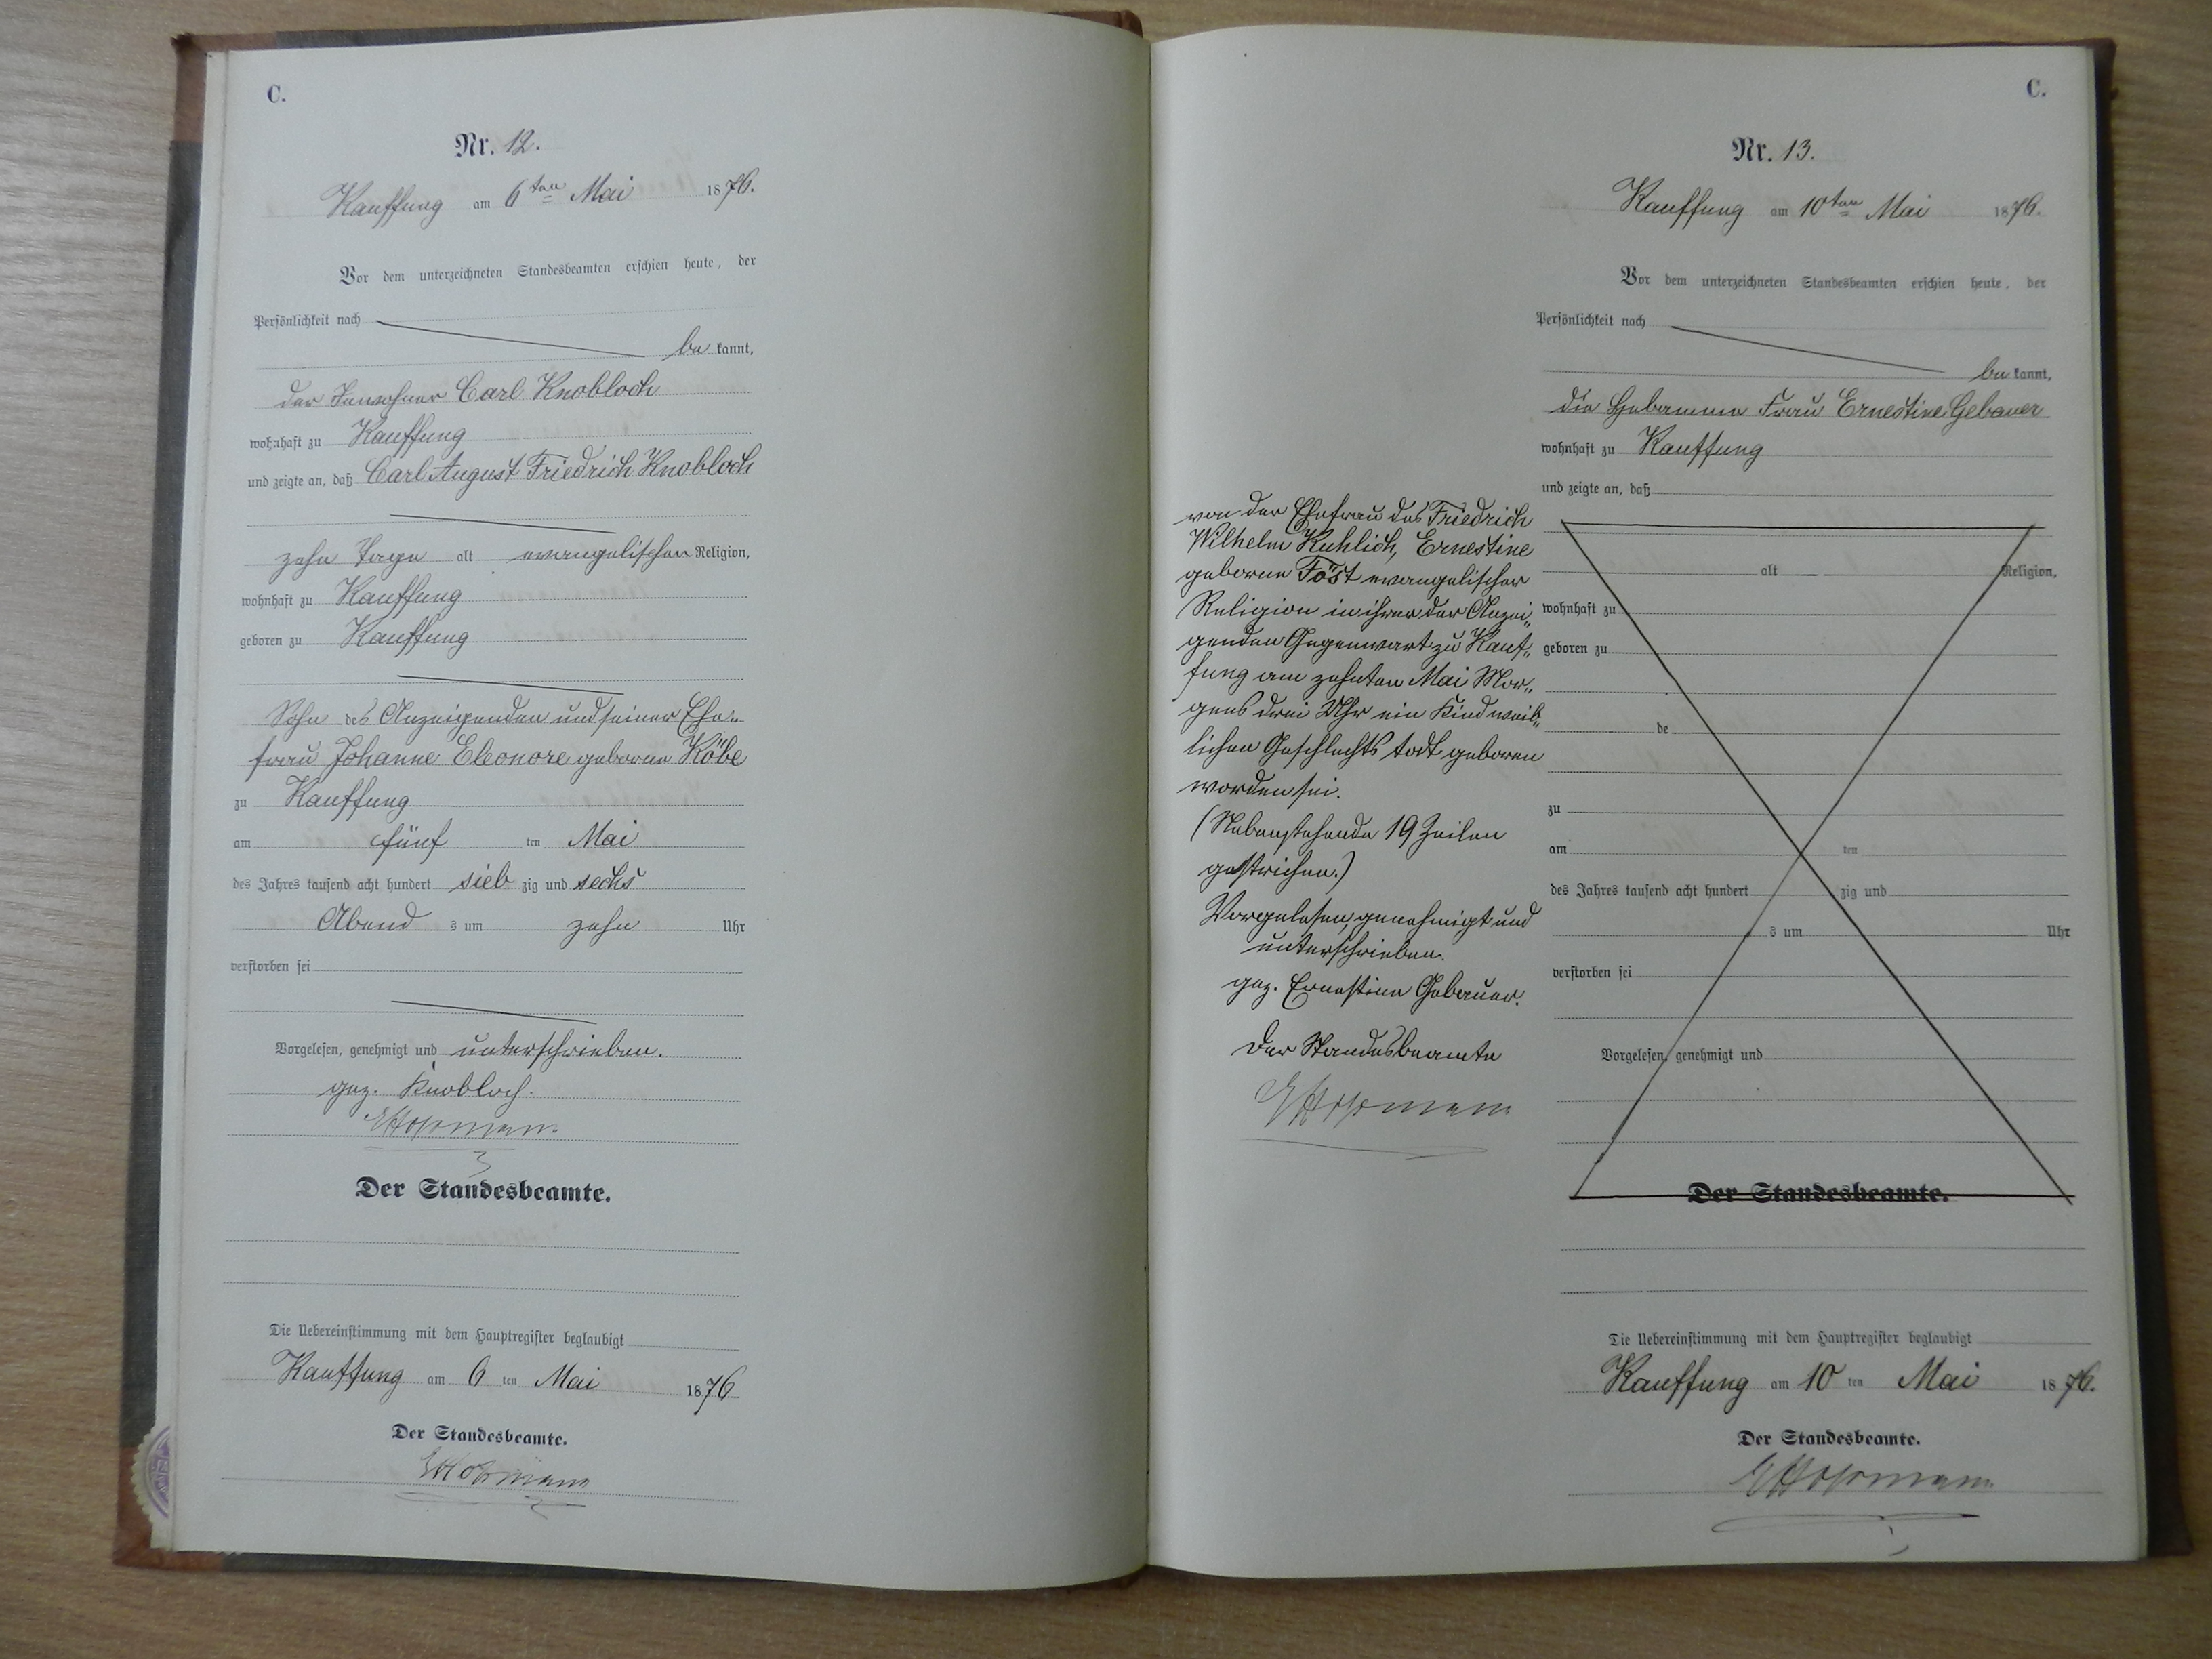 C.
Nr. 12.
Kauffung am 6ten Mai 1876.
Vor dem unterzeichneten Standesbeamten erschien heute, der
Persönlichkeit nach
be kannt,
der Inwohner Carl Knobloch
wohnhaft zu Kauffung
und zeigte an, daß Carl August Friedrich Knobloch
zehn Tage alt evangelischen Religion,
wohnhaft zu Kauffung
geboren zu Kauffung
Sohn des Anzeigenden und seiner Ehe„
frau Johanne Eleonore geborne Köbe
zu Kauffung
am fünf ten Mai
des Jahres tausend acht hundert sieb zig und sechs
Abend s um zehn Uhr
verstorben sei
Vorgelesen, genehmigt und unterschrieben.
gez. Knobloch.
Der Standesbeamte.
Die Uebereinstimmung mit dem Hauptregister beglaubigt
Kauffung am 6 ten Mai 1876
Der Standesbeamte.
C.
Nr. 13.
Kauffung am 10ten Mai 1876.
Vor dem unterzeichneten Standesbeamten erschien heute, der
Persönlichkeit nach
be kannt,
die Hebamme Frau Ernestine Gebauer
wohnhaft zu Kauffung
und zeigte an, daß
von der Ehefrau des Friedrich
Wilhelm Kuhlich, Ernestine
geborne Föst evangelischer
Religion in ihrer der Anzei„
genden Gegenwart zu Kauf„
fung am zehnten Mai Mor„
gens drei Uhr ein Kind weib„
lichen Geschlechts todt geboren
worden sei.
(Nebenstehende 19 Zeilen
gestrichen.)
Vorgelesen, genehmigt und
unterschrieben.
gez. Ernestine Gebauer.
Der Standesbeamte
alt Religion,
wohnhaft zu
geboren zu
de
zu
am ten
des Jahres tausend acht hundert zig und
s um Uhr
verstorben sei
Vorgelesen, genehmigt und
Der Standesbeamte.
Die Uebereinstimmung mit dem Hauptregister beglaubigt
Kauffung am 10 ten Mai 1876.
Der Standesbeamte.